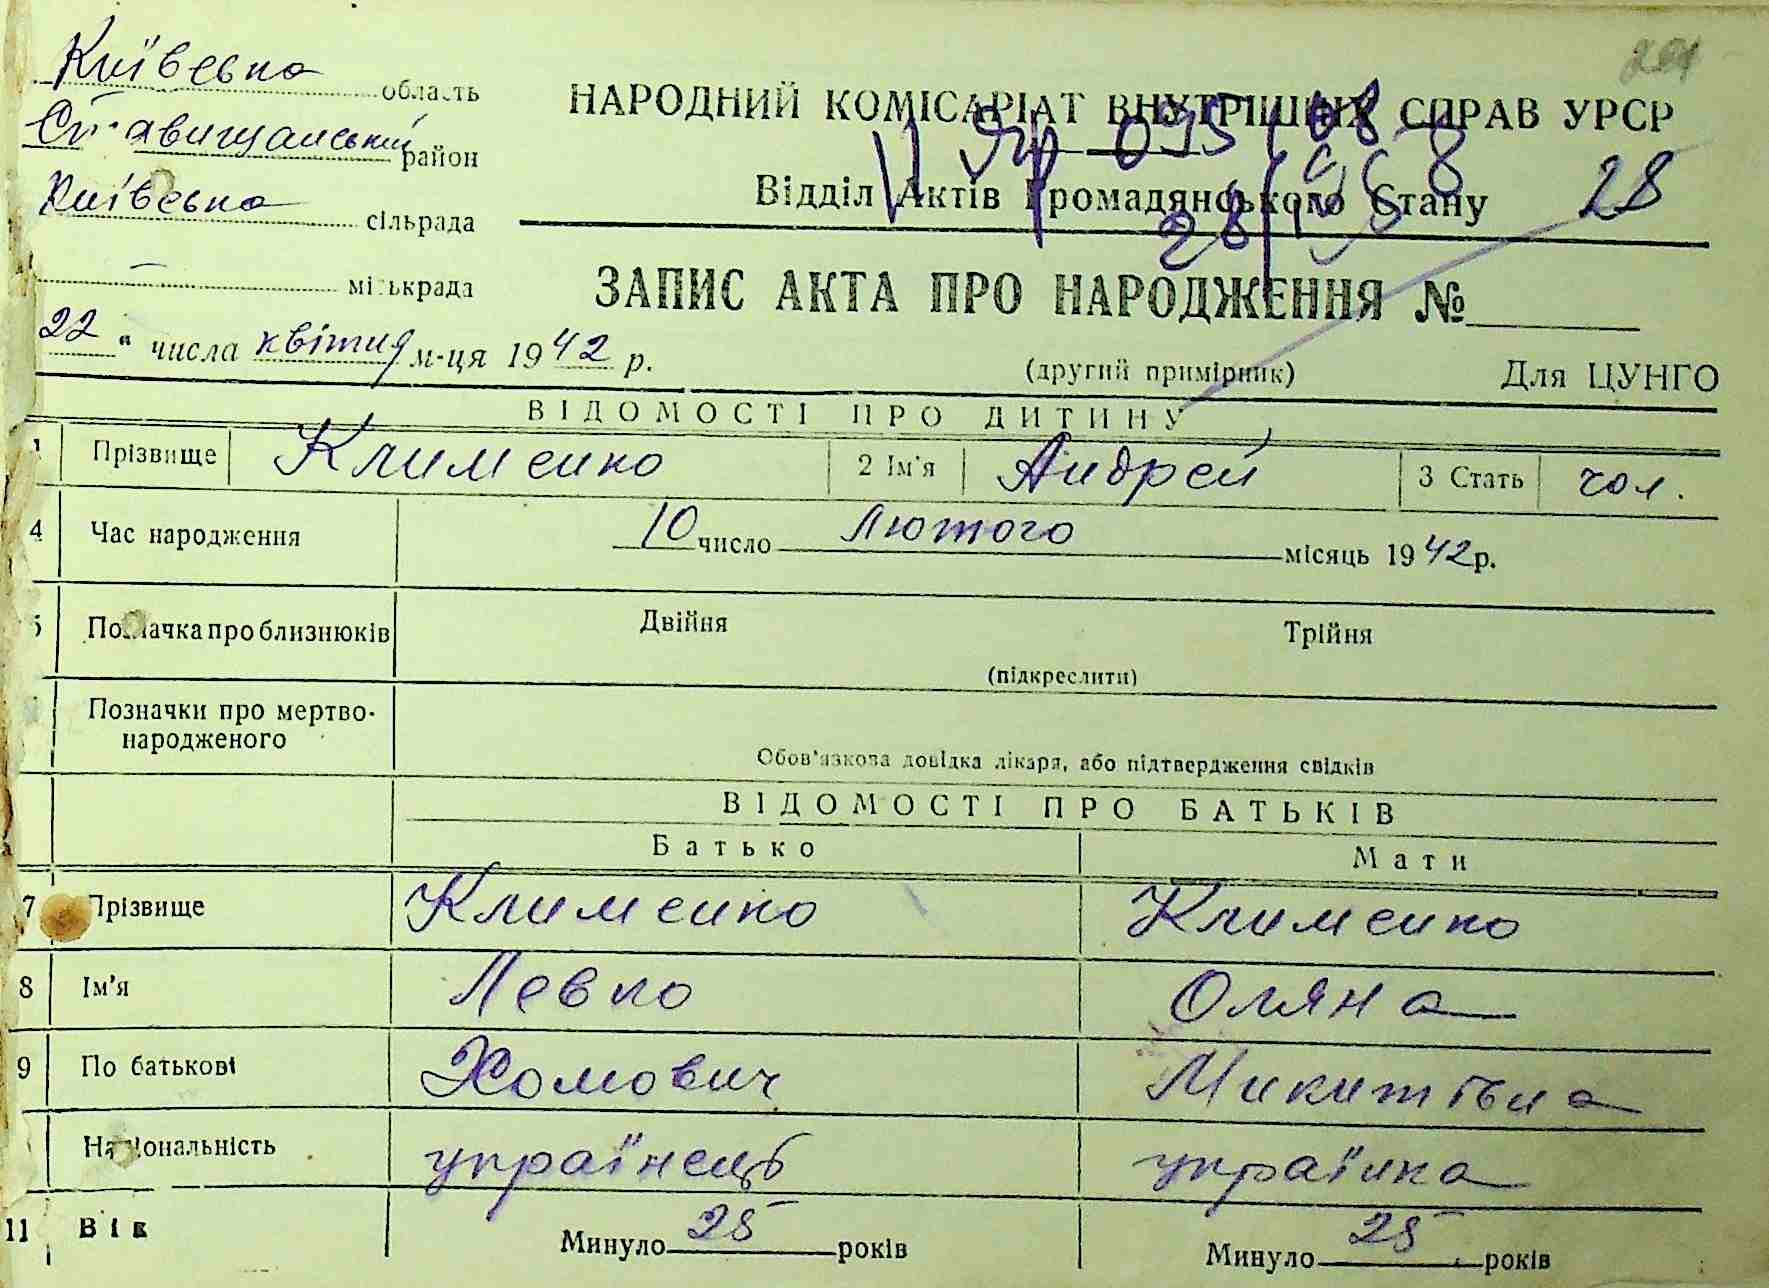 Київська область
Ставищанський район
Київська сільрада
— міськрада
22 " числа квітня м-ця 1942 р.
НАРОДНИЙ КОМІСАРІАТ ВНУТРІШНІХ СПРАВ УРСР
Відділ Актів Громадянського Стану 28
ЗАПИС АКТА ПРО НАРОДЖЕННЯ №
(другий примірник) Для ЦУНГО
ВІДОМОСТІ ПРО ДИТИНУ
1 Прізвище Клименко 2 Ім'я Андрей 3 Стать чол.
4 Час народження 10 число лютого місяць 1942 р.
5 Позначка про близнюків Двійня Трійня
(підкреслити)
Позначки про мертво-
народженого
Обов'язкова довідка лікаря, або підтвердження свідків
ВІДОМОСТІ ПРО БАТЬКІВ
Батько Мати
7 Прізвище Клименко Клименко
8 Ім'я Левко Оляна
9 По батькові Хомович Микитівна
Національність українець українка
11 Вік Минуло 25 років Минуло 25 років